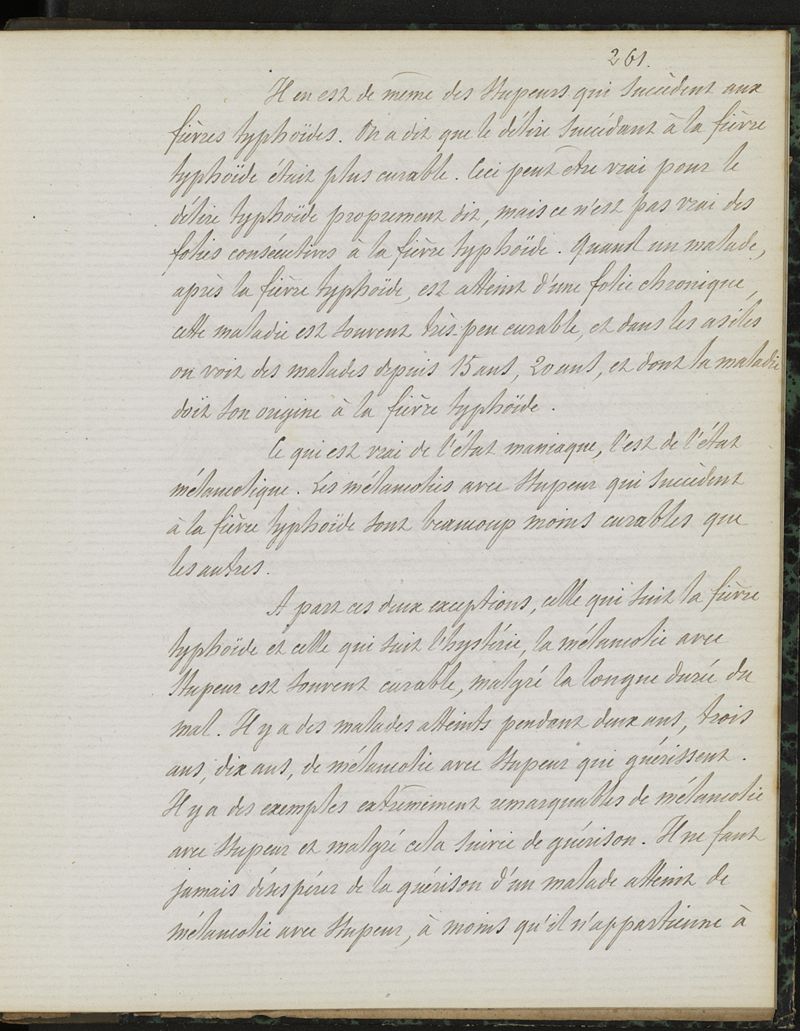 261.
Il en est de même des stupeurs qui succèdent aux
fièvres typhoïdes. On a dit que le délire succédant à la fièvre
typhoïde était plus curable. Ceci peut être vrai pour le
délire typhoïde proprement dit, mais ce n'est pas vrai des
folies consécutives à la fièvre typhoïde. Quand un malade,
après la fièvre typhoïde, est atteint d'une folie chronique,
cette maladie est souvent très peu curable, et dans les asiles
on voit des malades depuis 15 ans, 20 ans, et dont la maladie
doit son origine à la fièvre typhoïde.
Ce qui est vrai de l'état maniaque, l'est de l'état
mélancolique. Les mélancolies avec stupeur qui succèdent
à la fièvre typhoïde sont beaucoup moins curables que
les autres.
A part ces deux exceptions, celle qui suit la fièvre
typhoïde et celle qui suit l'hystérie, la mélancolie avec
stupeur est souvent curable, malgré la longue durée du
mal. Il y a des malades atteints pendant deux ans, trois
ans, dix ans, de mélancolie avec stupeur qui guérissent.
Il y a des exemples extrêmement remarquables de mélancolie
avec stupeur et malgré cela suivie de guérison. Il ne faut
jamais désespérer de la guérison d'un malade atteint de
mélancolie avec stupeur, à moins qu'il n'appartienne à